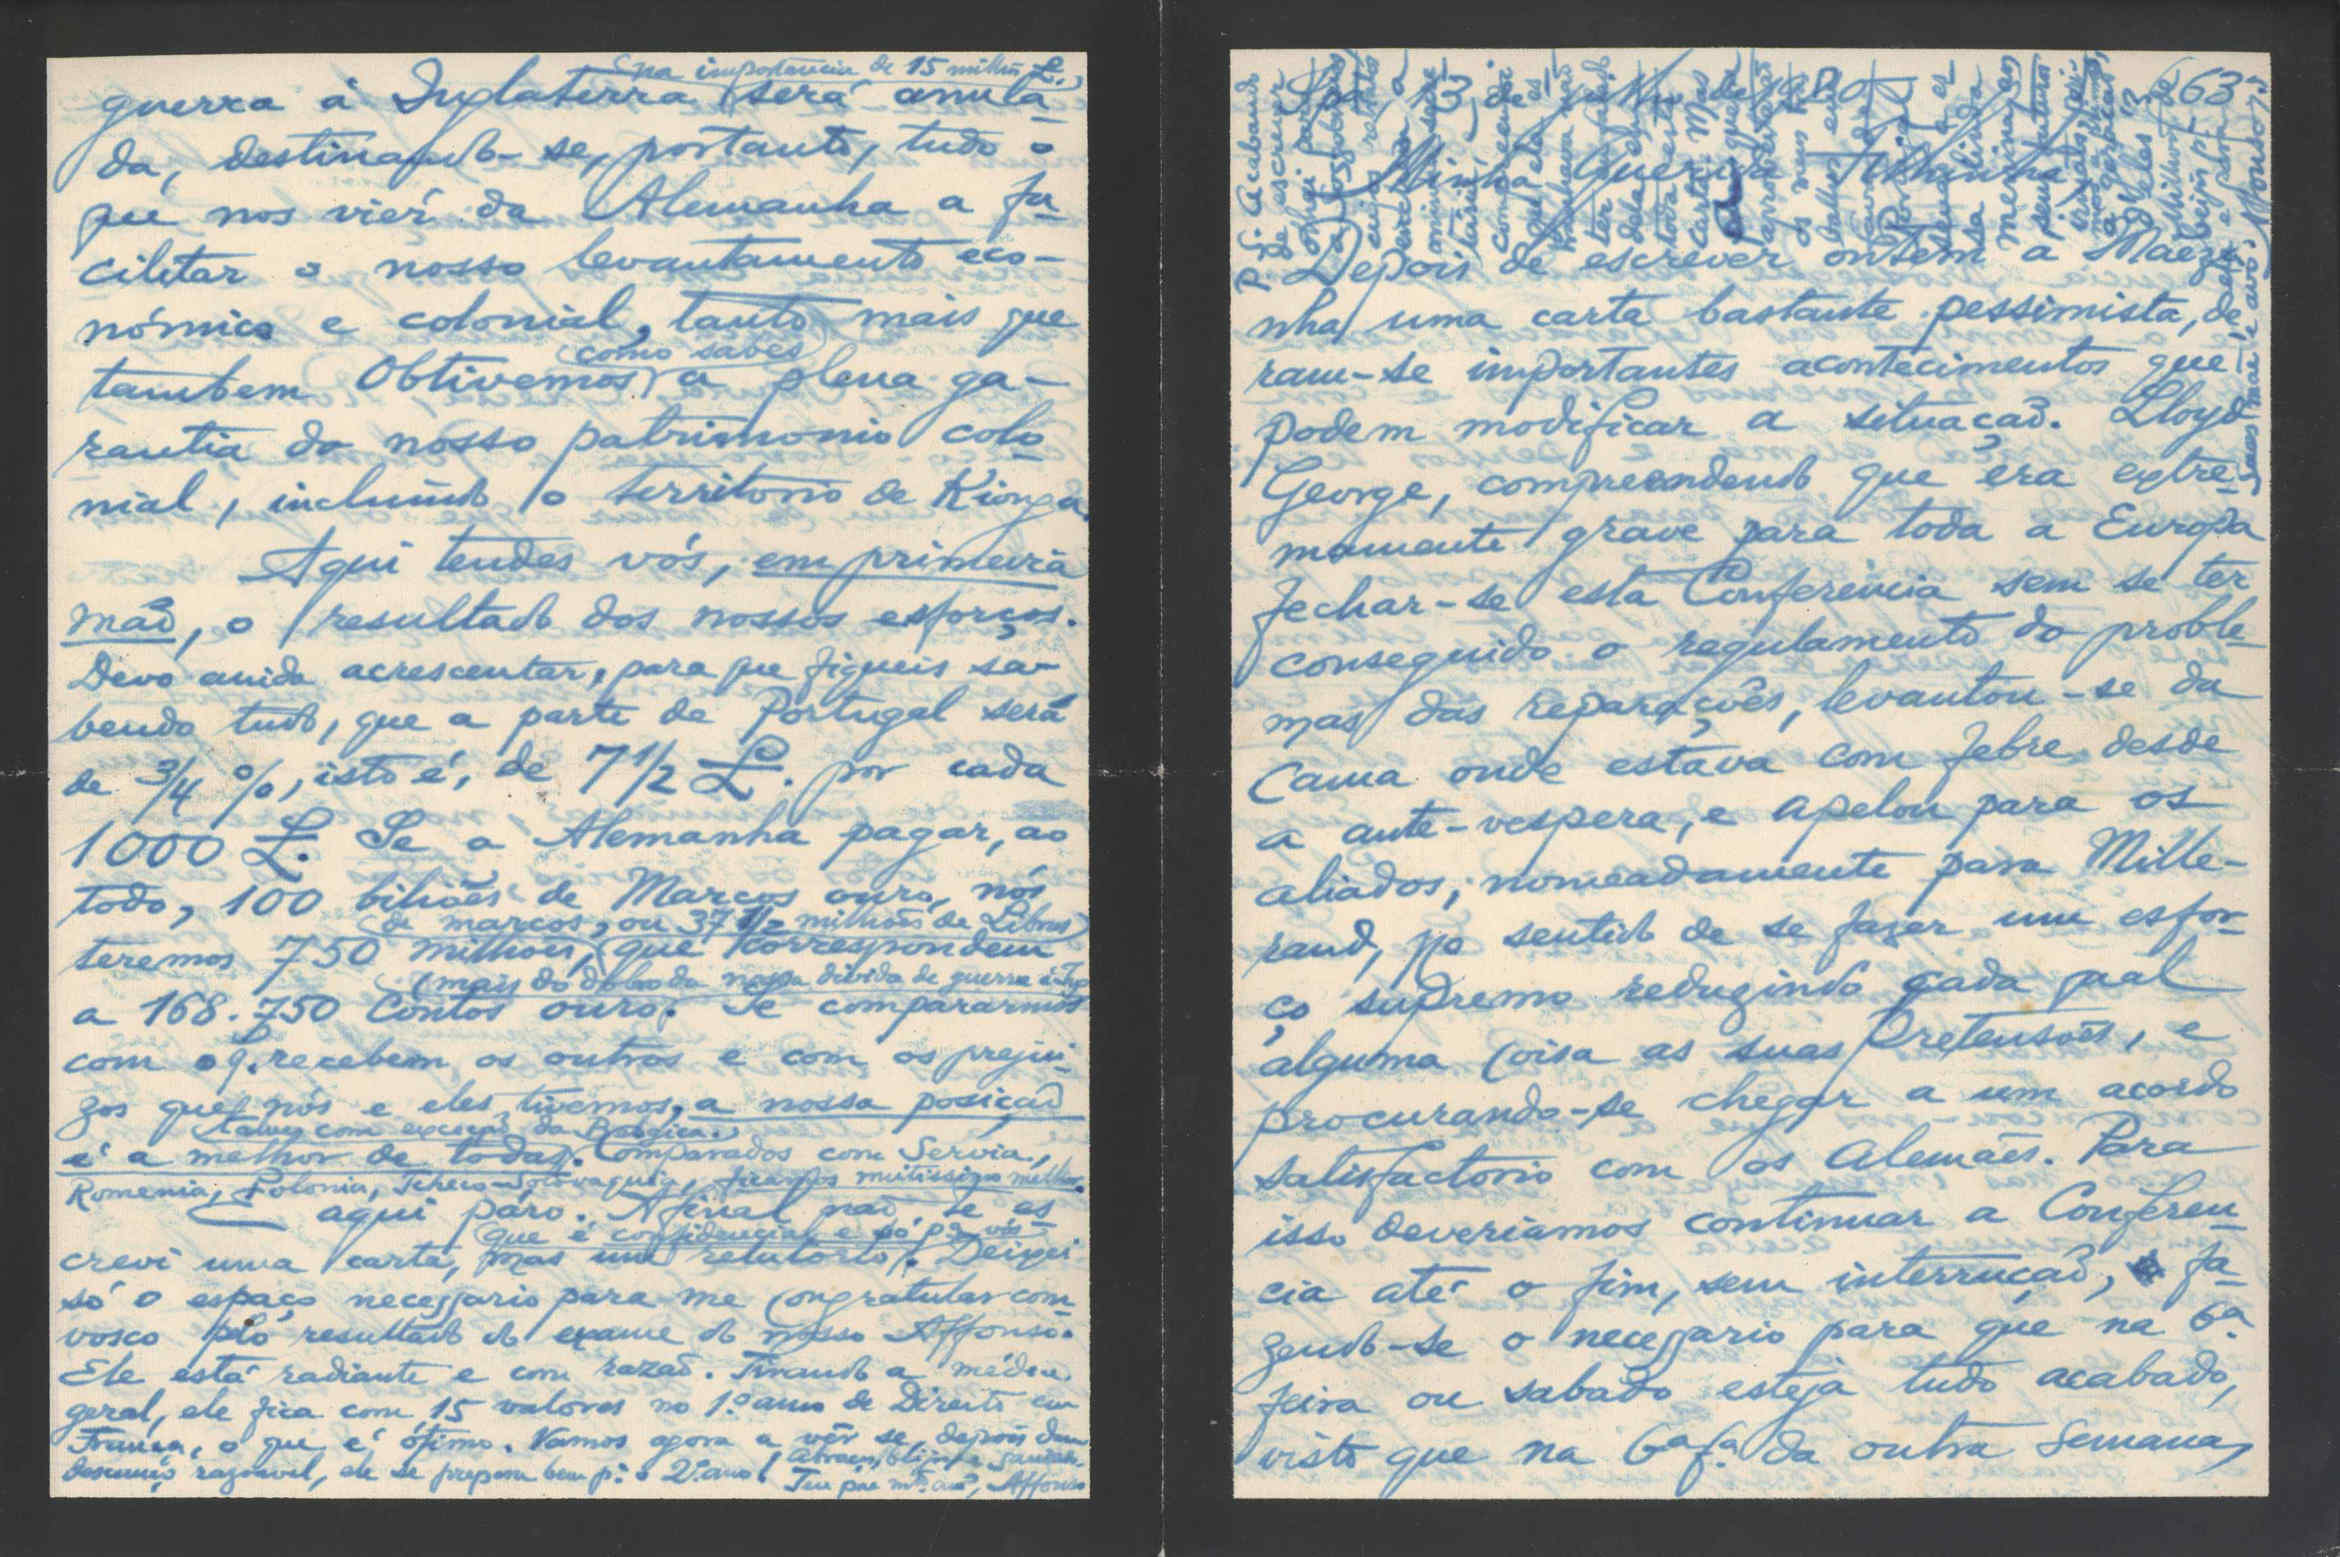 (na importancia de 15 milhões £.)
guerra á Inglaterra será anula-
da, destinando-se, portanto, tudo o
que nos viér da Alemanha a fa-
cilitar o nosso levantamento eco-
nómico e colonial, tanto mais que
tambem obtivemos (como sabes) a plena ga-
rantia do nosso patrimonio colo-
nial, incluindo o territorio de Kionga.
Aqui tendes vós, em primeira
mão, o resultado dos nossos esforços.
Devo ainda acrescentar, para que fiqueis sa-
bendo tudo, que a parte de Portugal será
de 3/4 %, isto é, de 7 1/2 £. por cada
1000 £. Se a Alemanha pagar, ao
todo, 100 biliões de Marcos ouro, nós
teremos 750 milhões, (de marcos, ou 37 1/2 milhões de Libras) que correspondem
a 168.750 Contos ouro. (mais do dobro da nossa divida de guerra Se compararmos
com o q. recebem os outros e com os prejui-
zos que nós e eles tivemos, a nossa posição
é a melhor de todas. (talvez com exceção da Belgica.) Comparados com Servia,
Romenia, Polonia, Tcheco-Slovaquia, ficamos muitissimo melhor.
aqui páro. Afinal não te es-
crevi uma carta, mas um relatorio, (que é confidencial e só pa. vós). Deixei
só o espaço necessario para me congratular com-
vosco plo resultado do exame do nosso Affonso.
Ele está radiante e com razão. Tirando a média
geral, ele fica com 15 valores no 1.º ano de Direito em
França, o que é ótimo. Vamos agora a vêr se, depois dum
descanço razoavel, ele se prepara bem pa. o 2.º ano.
Teu pae mto. amo., Affonso
Spa, 13 de julho de 1920
63
Minha Querida
Depois de escrever ontem a Mãezi-
nha uma carta bastante pessimista, dé-
ram-se importantes acontecimentos que
podem modificar a situação. Lloyd
George, compreendendo que éra extre-
mamente grave para toda a Europa
fechar-se esta Conferencia sem se ter
conseguido o regulamento do proble-
mas das reparações, levantou-se da
cama onde estava com febre desde
a ante-vespera, e apelou para os
aliados, nomeadamente para Mille-
rand, no sentido de se fazer um esfor-
ço supremo reduzindo cada qual
alguma coisa as suas pretensões, e
procurando-se chegar a um acordo
satisfactorio com os Alemães. Para
isso deveriamos continuar a Conferen-
cia até o fim, sem interrução, fa-
zendo-se o necessario para que na 6ª.
feira ou sabado esteja tudo acabado,
visto que na 6ª fª. da outra semana,
P.S. Acabando
de escrever